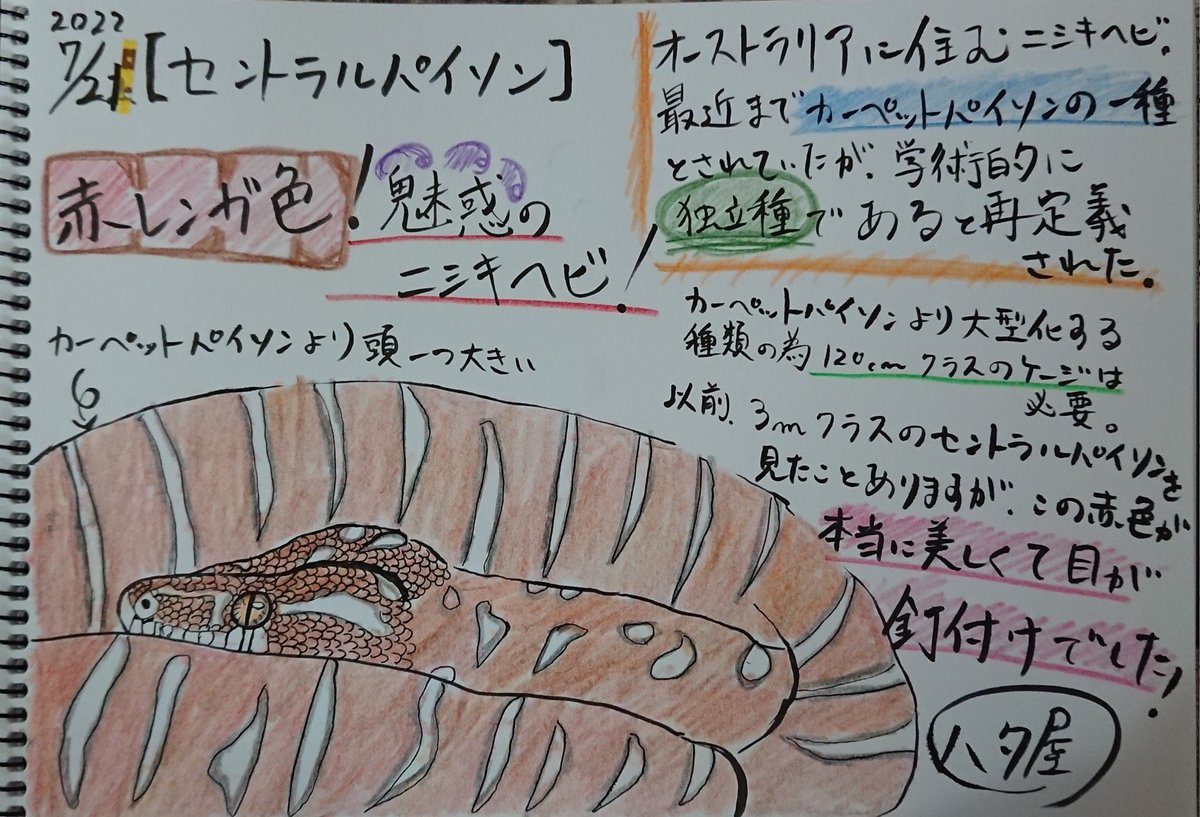 2022
7/21 [セントラルパイソン]
赤レンガ色! 魅惑の
ニシキヘビ!
オーストラリアに住むニシキヘビ。
最近までカーペットパイソンの一種
とされていたが、学術的に
独立種であると再定義
された。
カーペットパイソンより大型化する
種類の為120cmクラスのケージは
必要。
以前、3mクラスのセントラルパイソンを
見たことありますが、この赤色が
本当に美しくて目が
釘付けでした!
カーペットパイソンより頭一つ大きい
ハタ屋